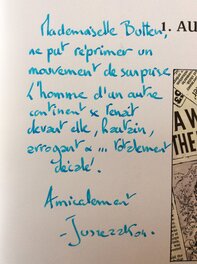 Mademoiselle Butten,
ne put réprimer un
mouvement de surprise
L'homme d'un autre
continent se tenait
devant elle, hautain,
arrogant & ... totalement
décalé!
Amicalement
1. AU
A W
THE